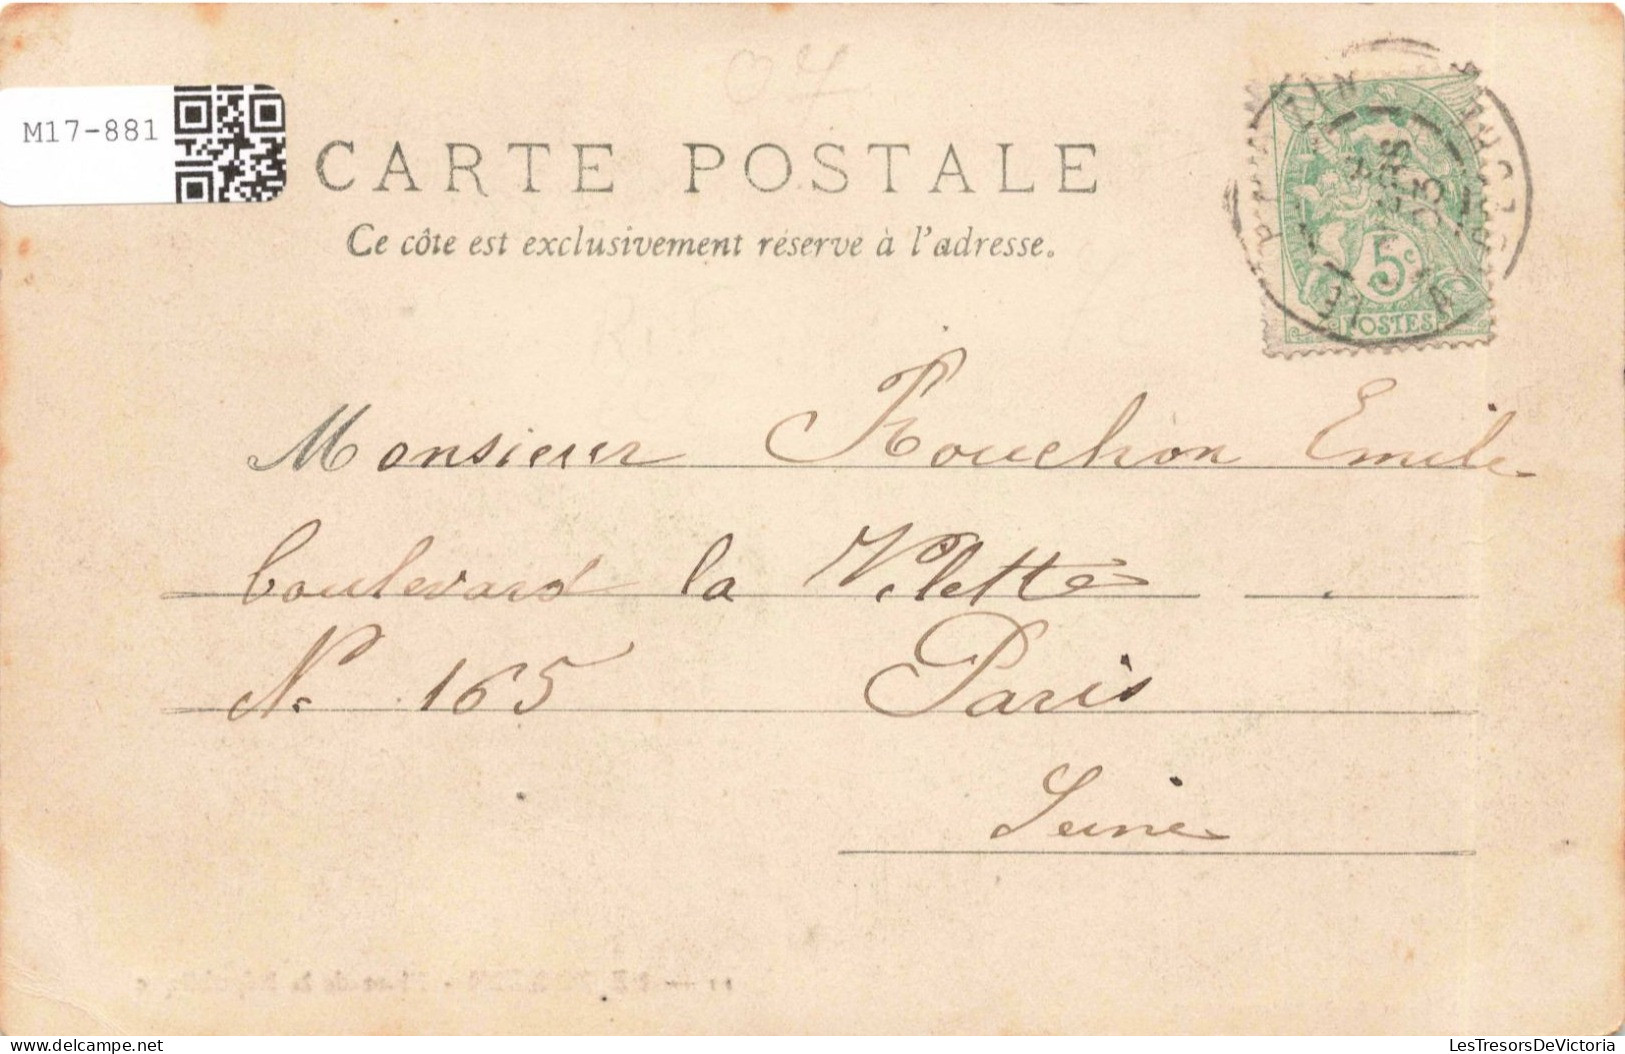 M17-881
07
CARTE POSTALE
Ce côte est exclusivement réserve à l'adresse.
5c
POSTES
Monsieur Rouchon Emile
boulevard la Vilette
N. 165 Paris
Seine
LesTresorsDeVictoria.com